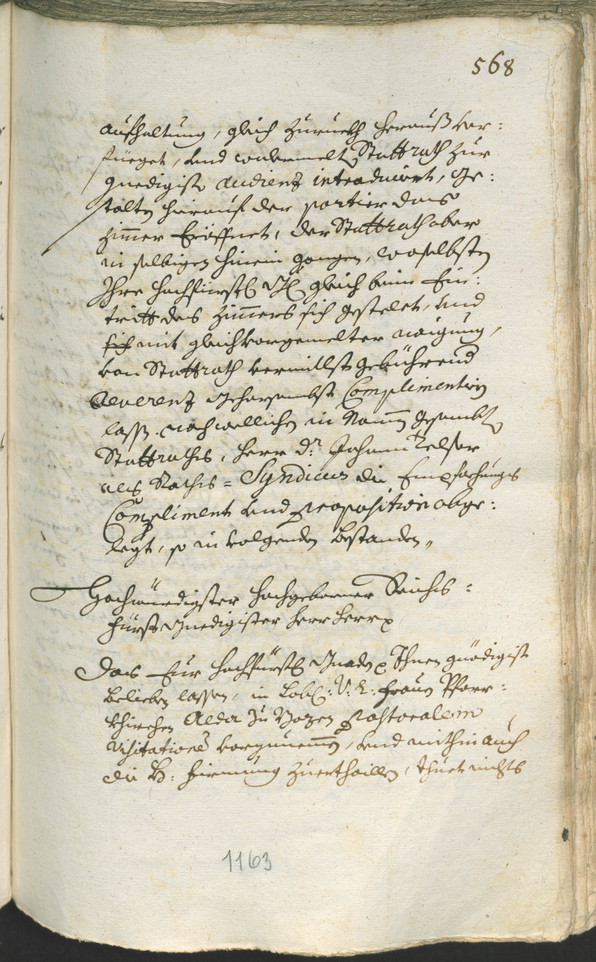 568
aufhaltung, gleich zurueckh herauß ver:
füeget, und widermelt Stattrath zur
gnedigiste audienz introduciert, ge:
stalten hierauf der portier das
Zimmer Eröffnet, der Stattrath aber
in selbiges hinein gangen, wo selbsten
Ihre hochfürstl: gleich beim Ein:
tritt des Zimmers sich gestelet, und
sich mit gleich vorgemelter naigung,
von Stattrath vermitlst gebührend
Reverenz gehorsambst Complimentirn
lassen, nach welichen in Namen gesambten
Stattraths, herr Dr. Johann Zelser
als Raths = Syndicus die Empfachungs
Compliment und proposition abge:
legt, so in volgenden bestanden.
Hochwürdigster hochgeborner Reichs:
Fürst Gnedigister herr herr
Das Eur hochfürstl: Gnaden Ihnen gnädigist
belieben lassen, in Lobl: U: L: Frauen Pfarr:
khirchen Alda zu Bozen Pastoralem
Visitationem vorzunemmen, und mithin auch
die H: Firmung zuerthaillen, thuet nichts
1163